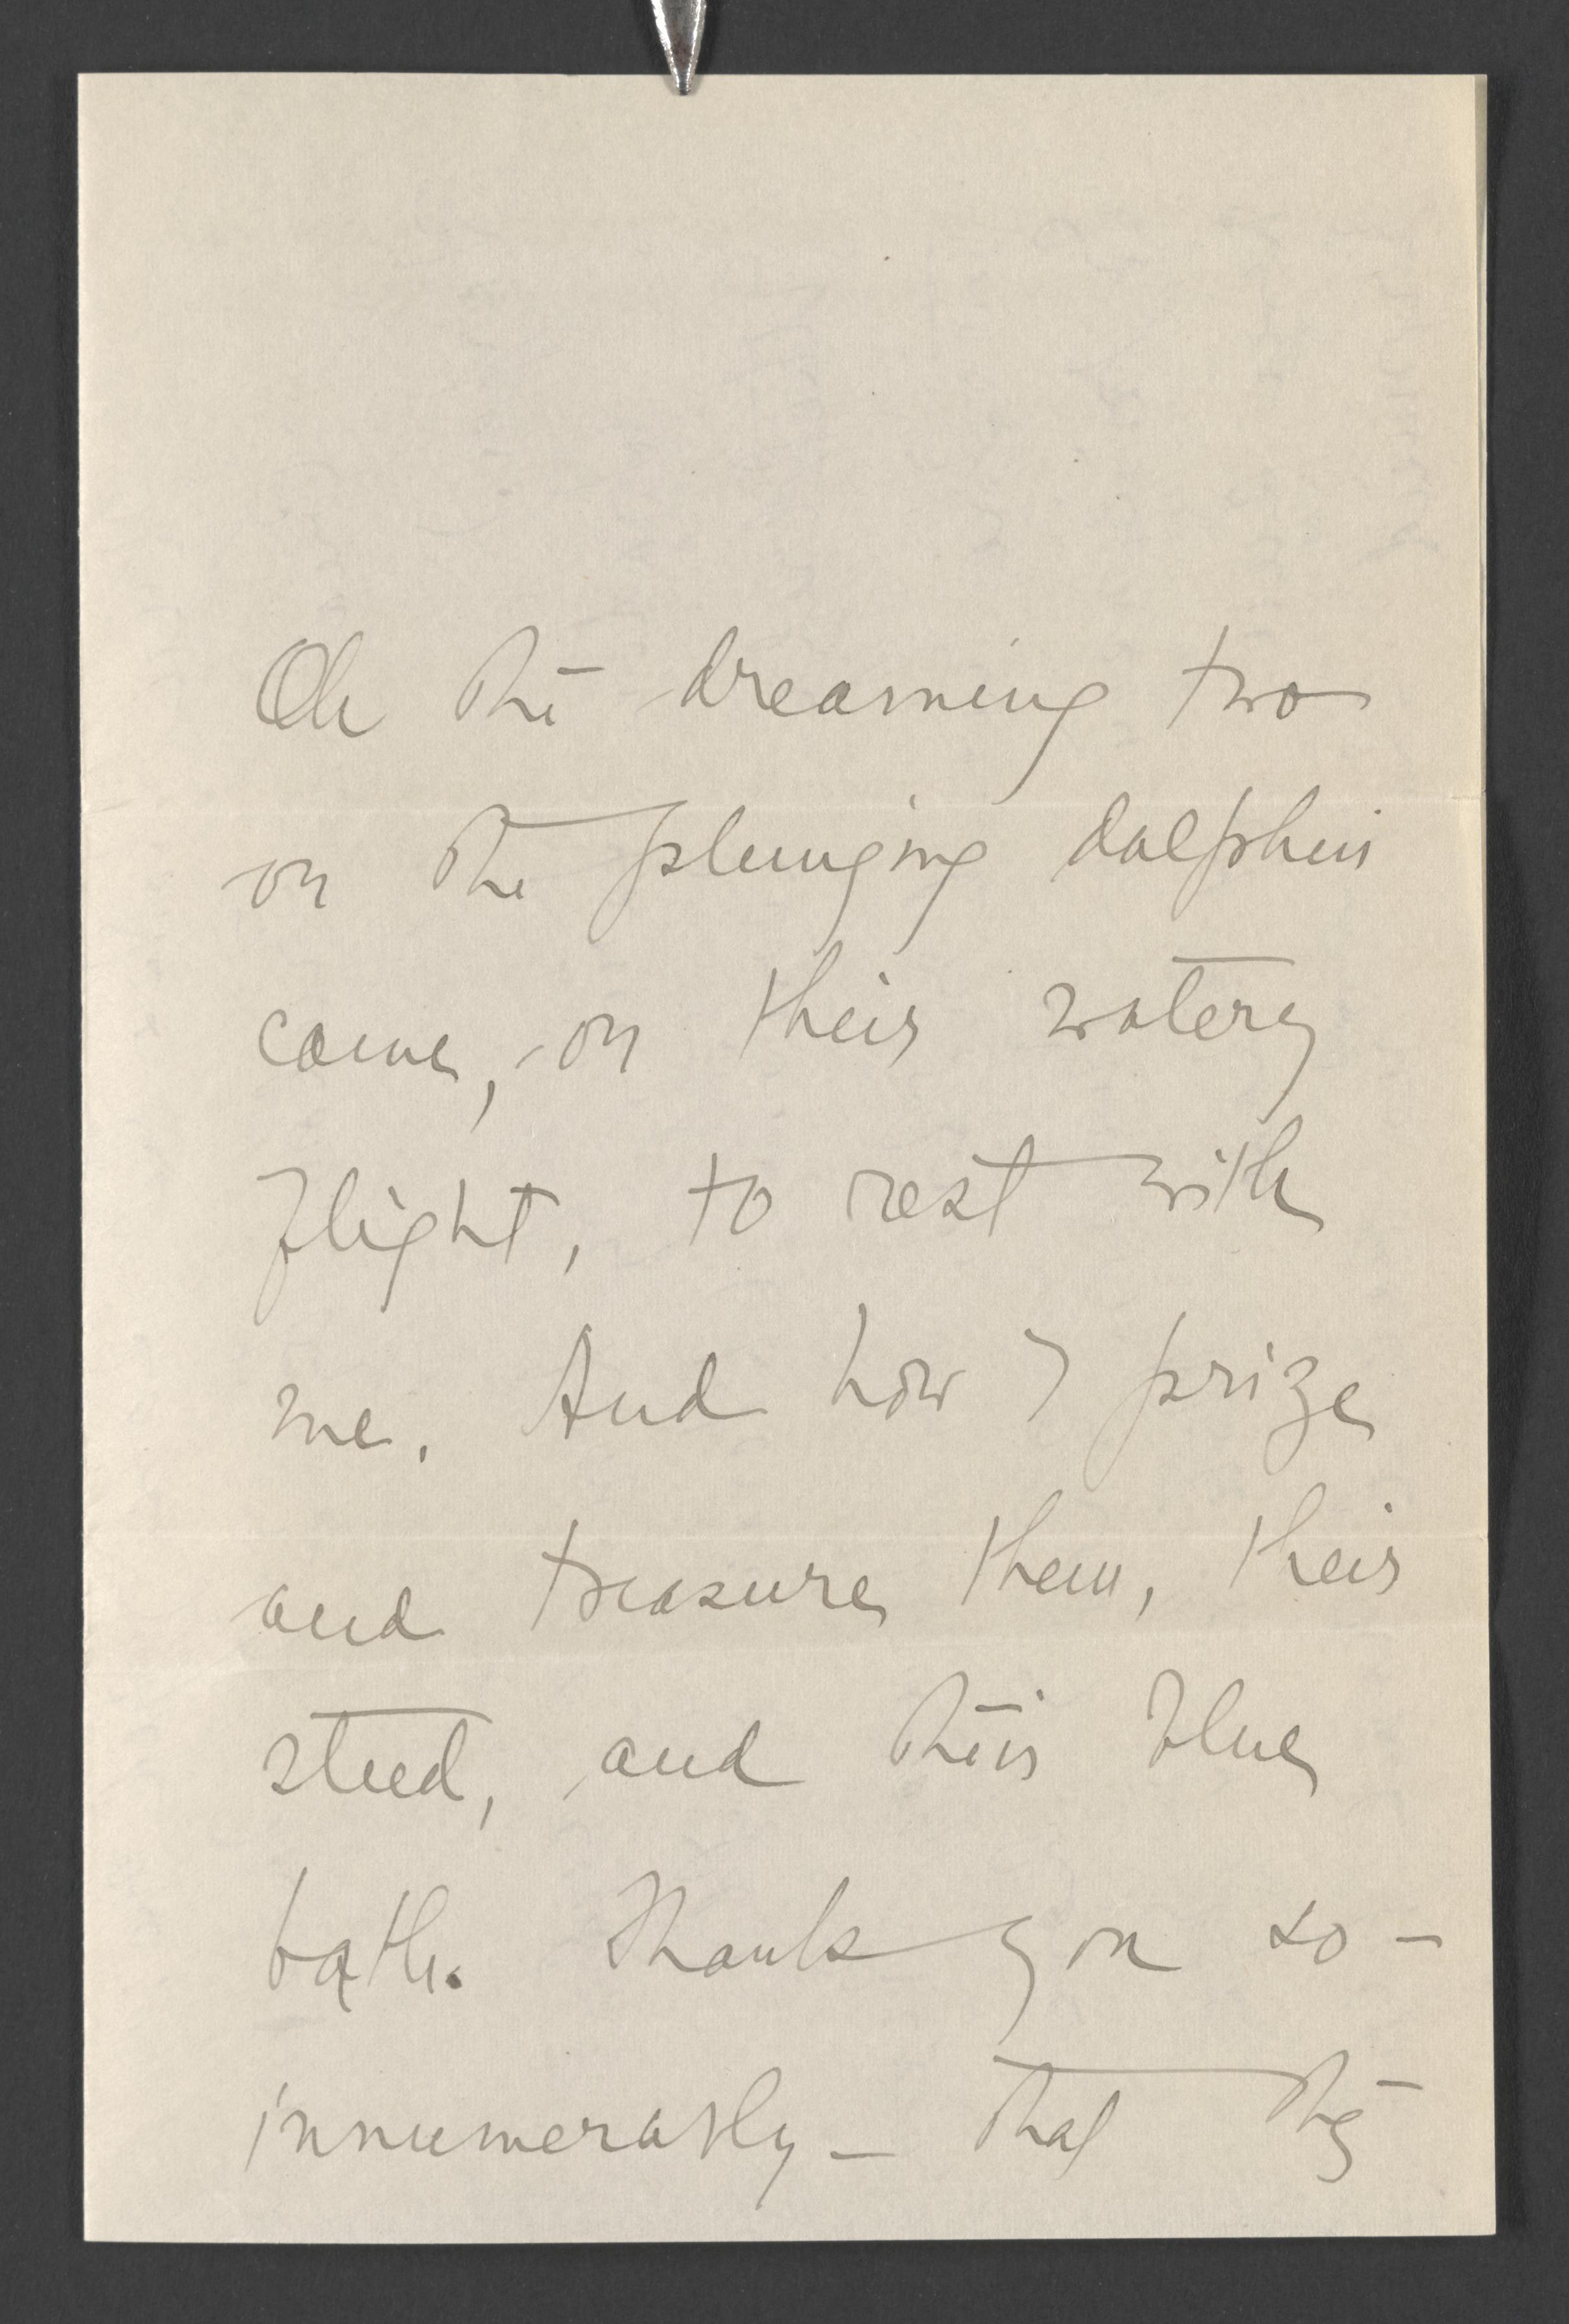 Oh the dreaming two
on the plunging dolphin
came, on their watery
flight, to rest with
me. And how I prize
and treasure them, their
steed, and their blue
bath. Thank you so –
innumerably – that they